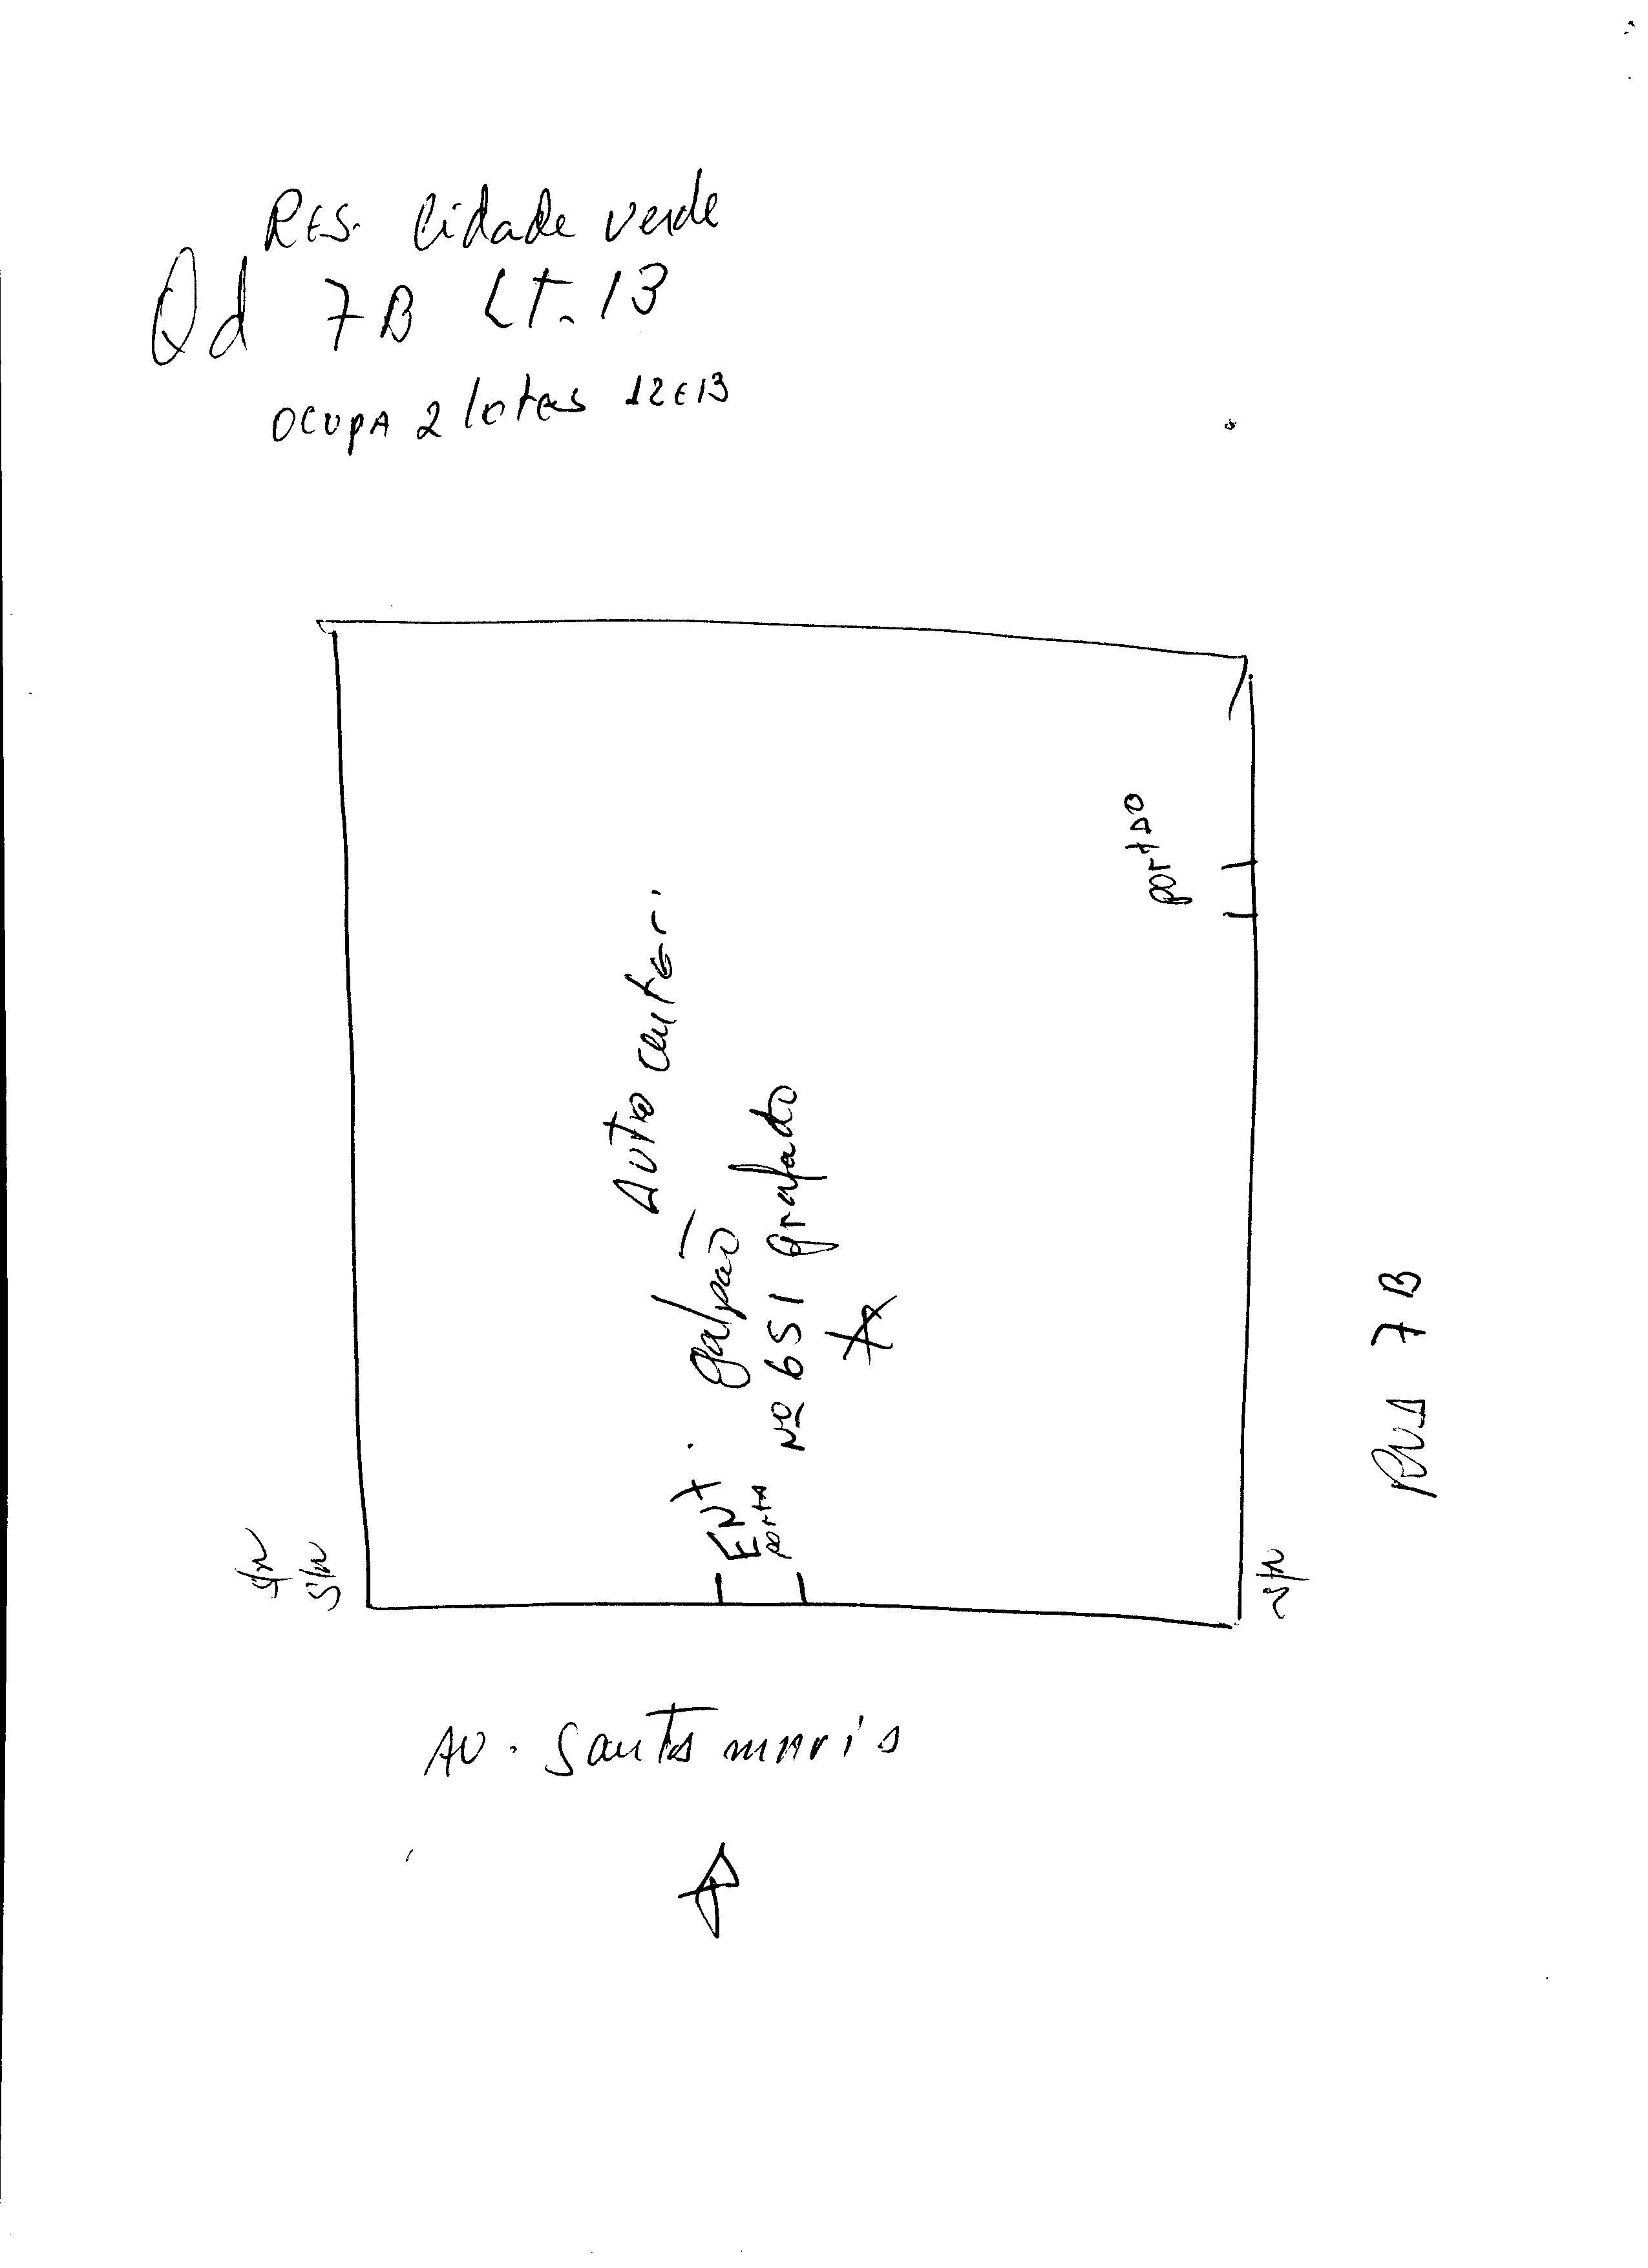 RES. Cidade verde
Qd 7B LT. 13
OCUPA 2 lotes 12 E 13
portão
Auto center.
galpão
Nº 651 grafado
ENT.
porta
RUA 7B
S/N
S/N
S/N
AV. Santa maria